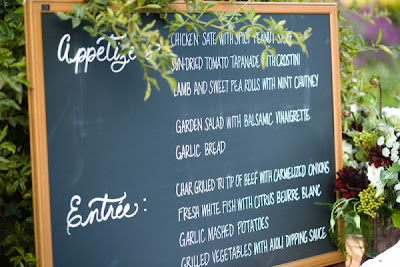 Appetizers:
CHICKEN SATE WITH SPICY PEANUT SAUCE
SUN-DRIED TOMATO TAPANADE WITH CROSTINI
LAMB AND SWEET PEA ROLLS WITH MINT CHUTNEY
GARDEN SALAD WITH BALSAMIC VINAIGRETTE
GARLIC BREAD
Entrée:
CHAR GRILLED TRI TIP OF BEEF WITH CARMELIZED ONIONS
FRESH WHITE FISH WITH CITRUS BEURRE BLANC
GARLIC MASHED POTATOES
GRILLED VEGETABLES WITH AIOLI DIPPING SAUCE